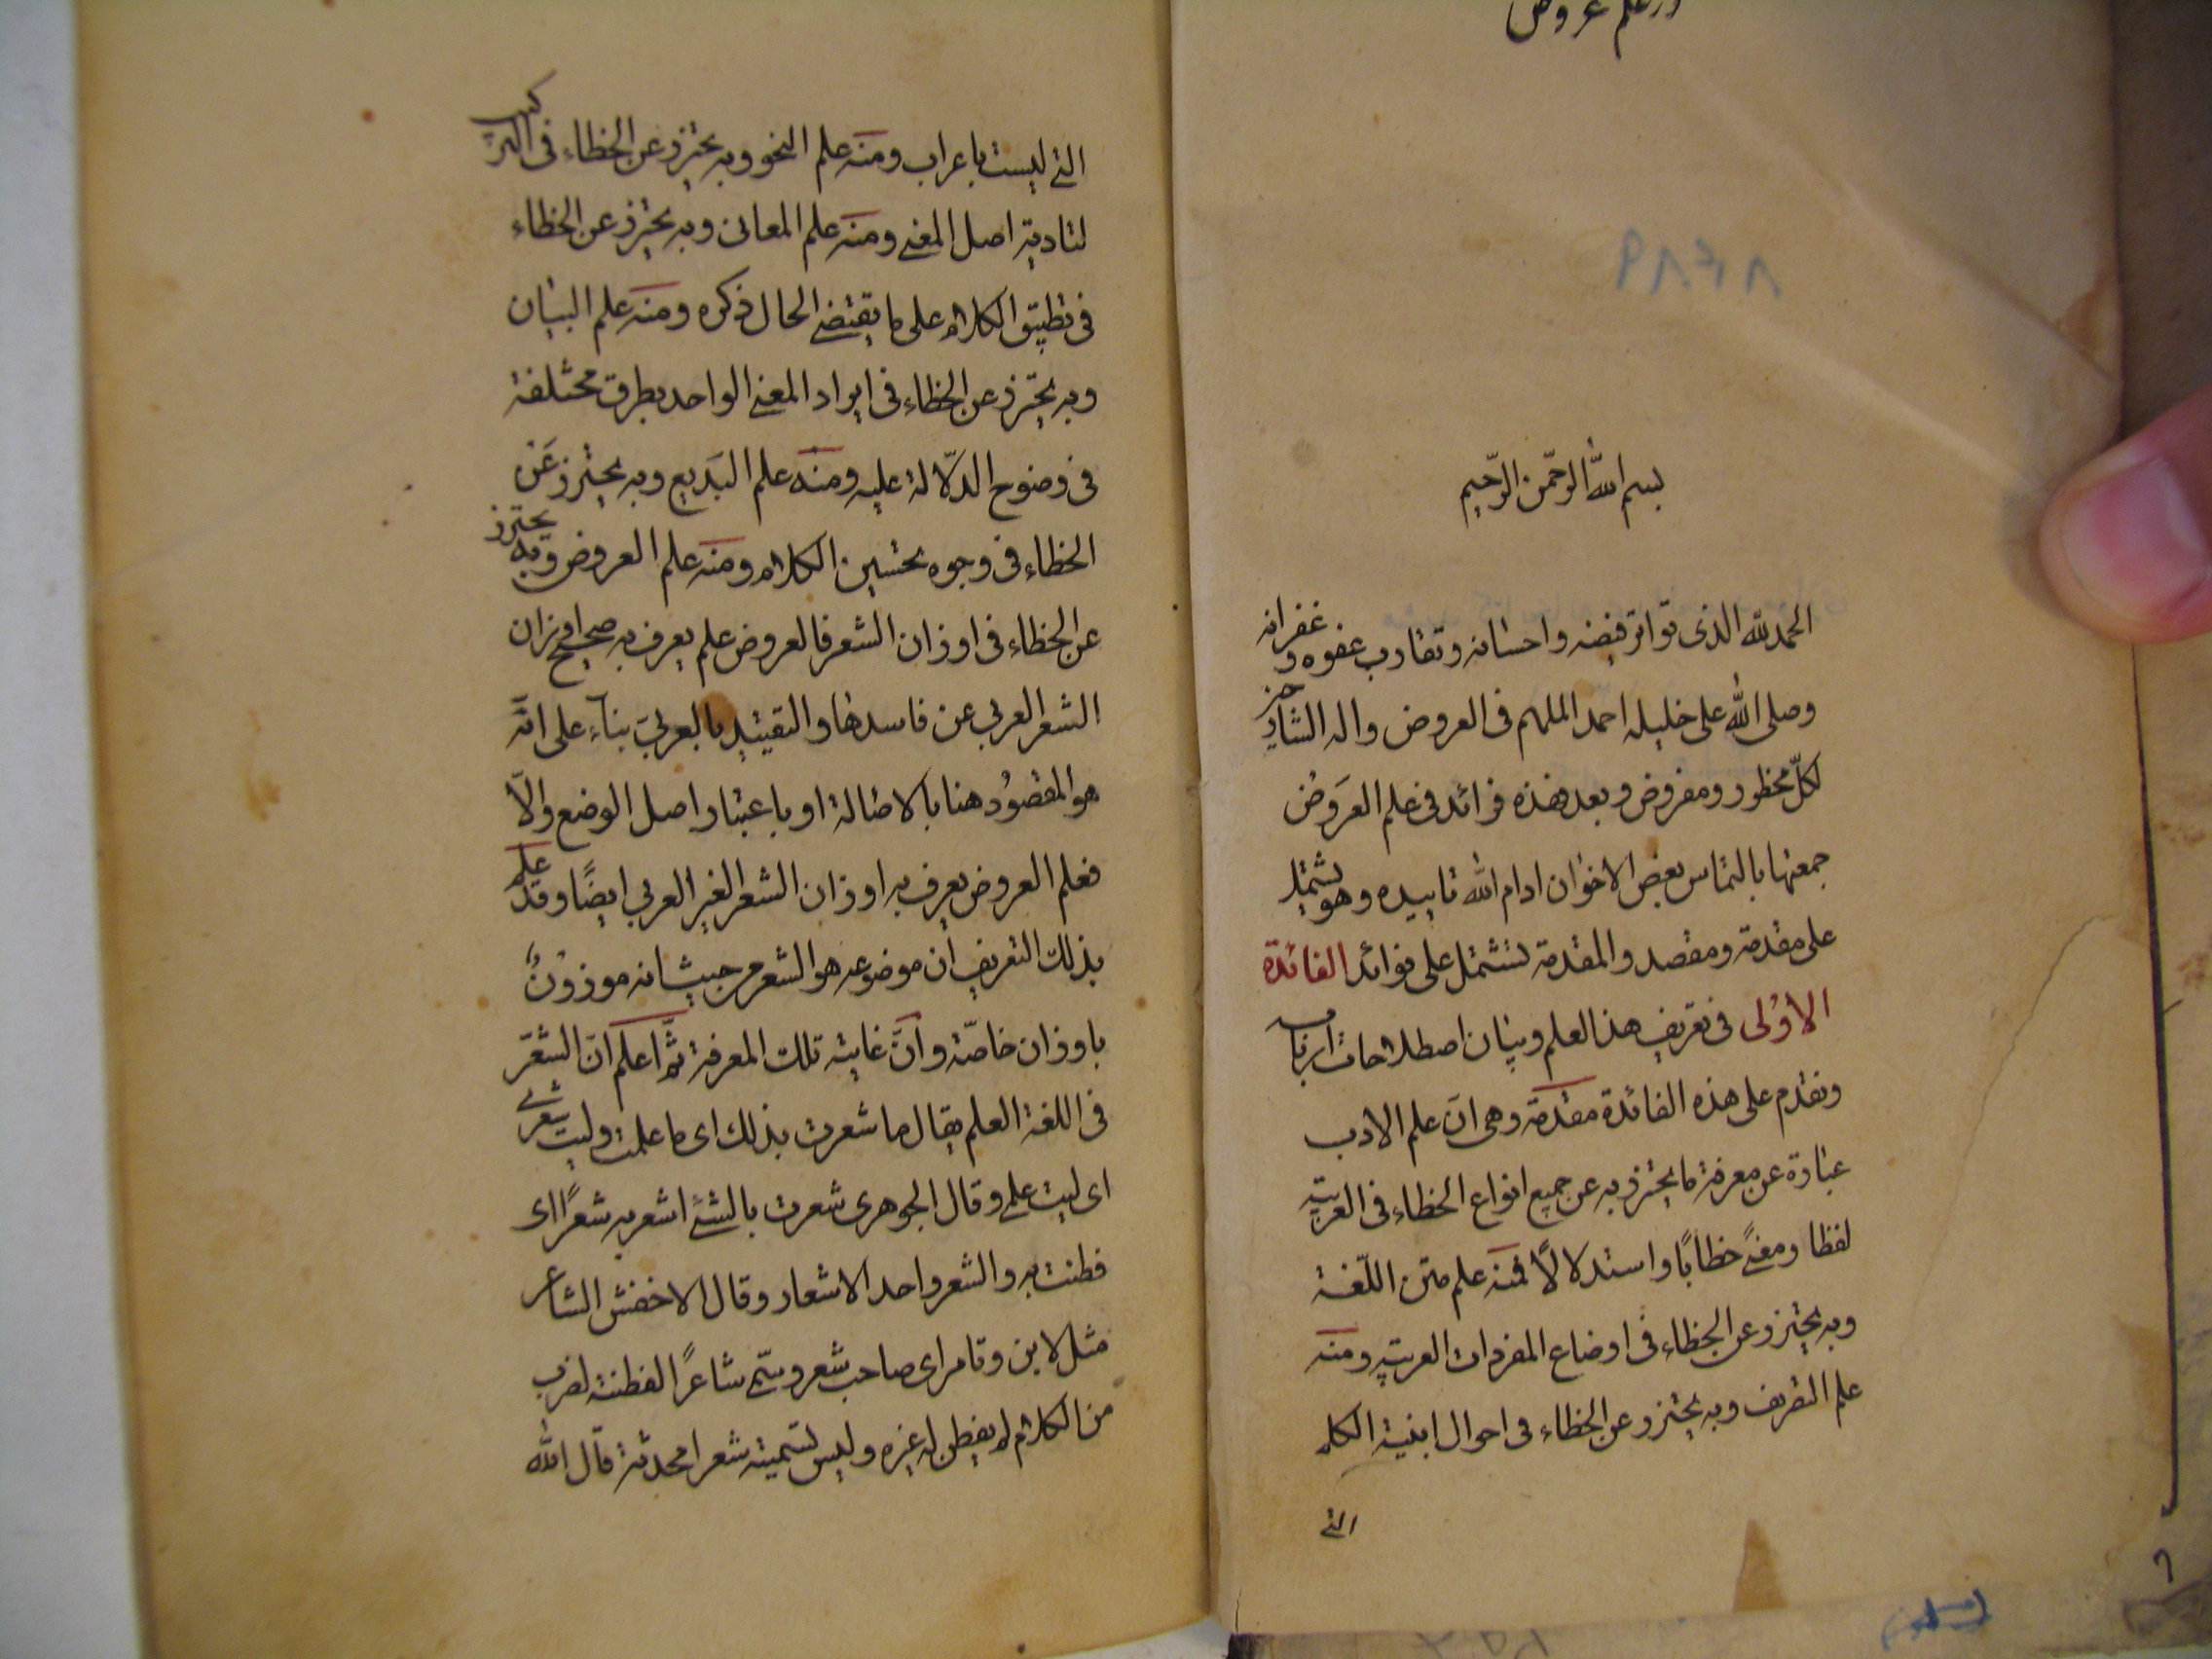 در علم عروض
بسم الله الرحمن الرحيم
الحمد لله الذى تواتر فيضه واحسانه وتقارب عفوه وغفرانه
وصلى الله على خليله احمد الملهم فى العروض واله الشارحين
لكلّ محظور ومفروض وبعد فهذه فرائد فى علم العَروُض
جمعتها بالتماس بعض الاخوان ادام الله تاييده وهو يشتمل
على مقدمة ومقصد والمقدمة تشتمل على فوائد الفائدة
الاوُلى فى تعريف هذا العلم وبيان اصطلاحات اربابه
ونقدم على هذه الفائدة مقدمة وهى انّ علم الادب
عبارة عن معرفة ما يحترز به عن جميع انواع الخطاء فى العربية
لفظا ومعنىً خطابًا واستدلالًا فمنه علم متن اللّغة
وبه يحترز عن الخطاء فى اوضاع المفردات العربية ومنه
علم التصريف وبه يحترز عن الخطاء فى احوال ابنية الكلم
التى
التى ليست باعراب ومنه علم النحو وبه يحترز عن الخطاء فى التركيب
لتادية اصل المعنى ومنه علم المعانى وبه يحترز عن الخطاء
فى تطبيق الكلام على ما يقتضى الحال ذكره ومنه علم البيان
وبه يحترز عن الخطاء فى ايراد المعنى الواحد بطرق مختلفة
فى وضوح الدّلالة عليه ومنه علم البَديع وبه يحترز عَن
الخطاء فى وجوه تحسين الكلام ومنه علم العروض وبه يحترز
عن الخطاء فى اوزان الشعر فالعروض علم يعرف به صحيح اوزان
الشعر العربي عن فاسدها والتقييد بالعربيّ بناء على انّه
هو المقصُود هنا بالاصالة او باعتبار اصل الوضع والّا
فعلم العروض يعرف به اوزان الشعر الغير العربي ايضًا وقد علم
بذلك التعريف ان موضوعه هو الشعر من حيث انه موزوُنٌ
باوزان خاصّة وانَّ غايته تلك المعرفة ثمّ اعلم انّ الشعر
فى اللغة العلم يقال ما شعرت بذلك اى ما علمت وليت شعرى
اى ليت علمى وقال الجوهرى شعرت بالشئ اشعر به شعرًا اى
فطنت به والشعر واحد الاشعار وقال الاخفش الشاعر
مثل لابن وتامر اى صاحب شعر وسمّى شاعرًا لفطنته لضرب
من الكلام لم يفطن له غيره وليس تسميته شعرا محدثة قال الله